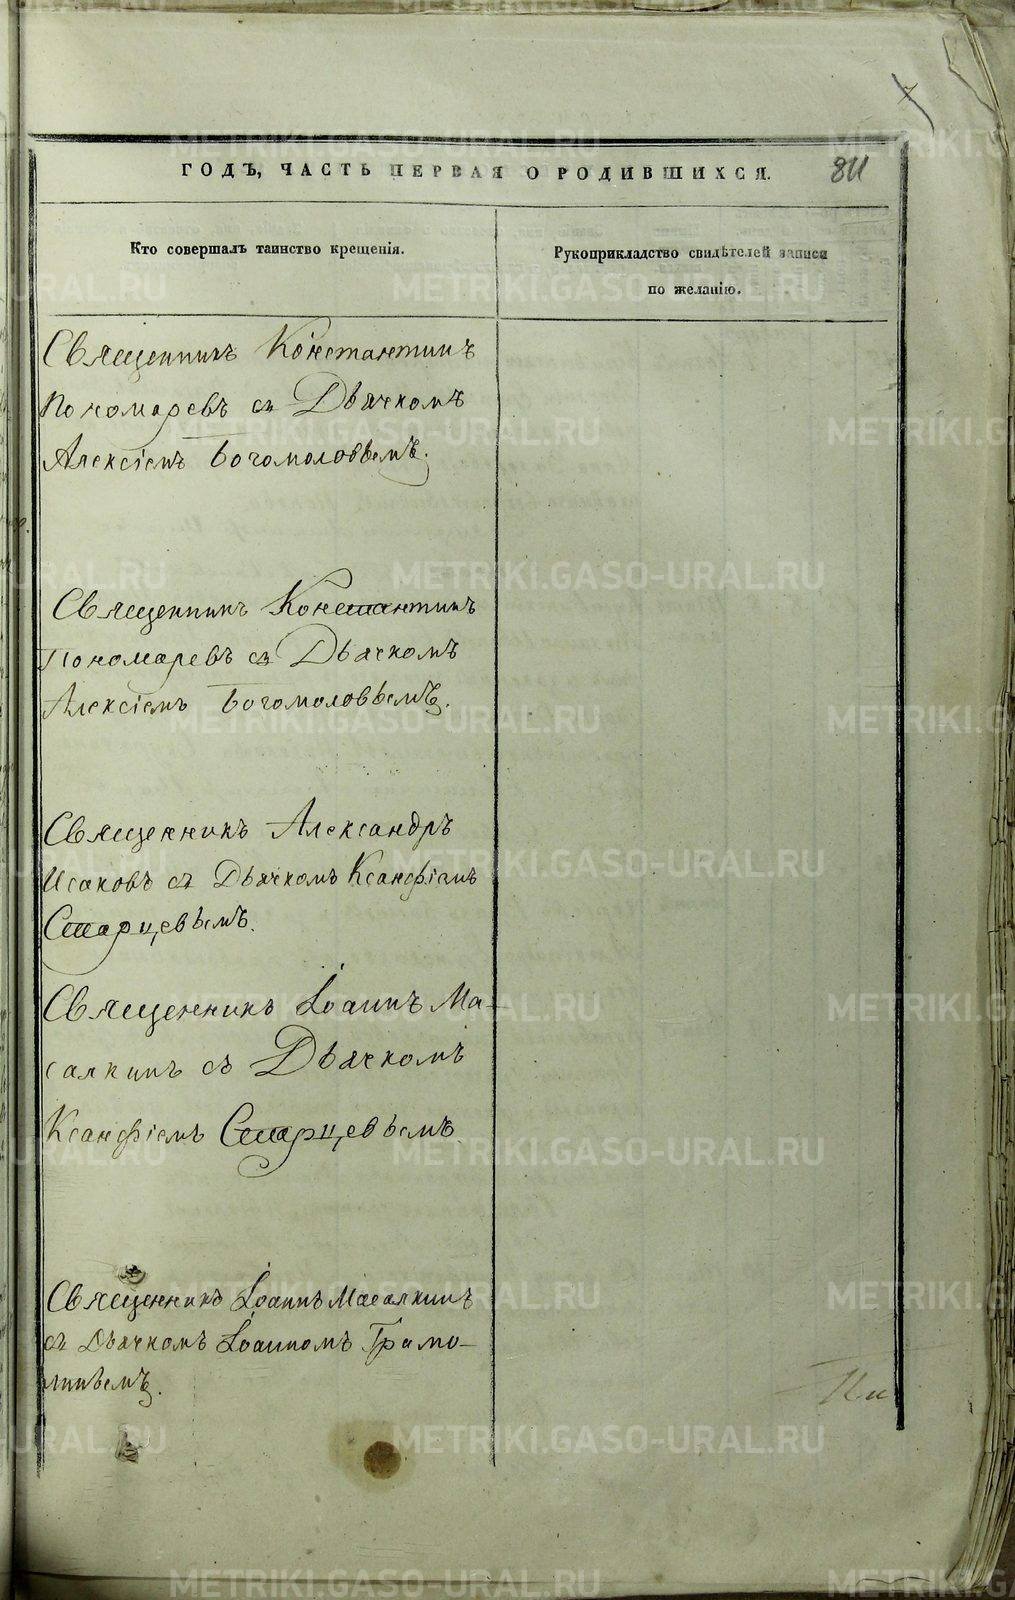 ГОДЪ, ЧАСТЬ ПЕРВАЯ О РОДИВШИХСЯ. 811
Кто совершалъ таинство крещенія.
Рукоприкладство свидѣтелей записи
по желанію.
Священникъ Константинъ
Пономаревъ съ Дьячкомъ
Алексіемъ Богомоловымъ.
Священникъ Константинъ
Пономаревъ съ Дьячкомъ
Алексіемъ Богомоловымъ.
Священникъ Александръ
Исаковъ съ Дьячкомъ Ксанфіемъ
Старцевымъ.
Священникъ Іоаннъ Ма-
салкинъ съ Дьячкомъ
Ксанфіемъ Старцевымъ.
Священникъ Іоаннъ Масалкинъ
съ Дьячкомъ Іоанномъ
METRIKI.GASO-URAL.RU